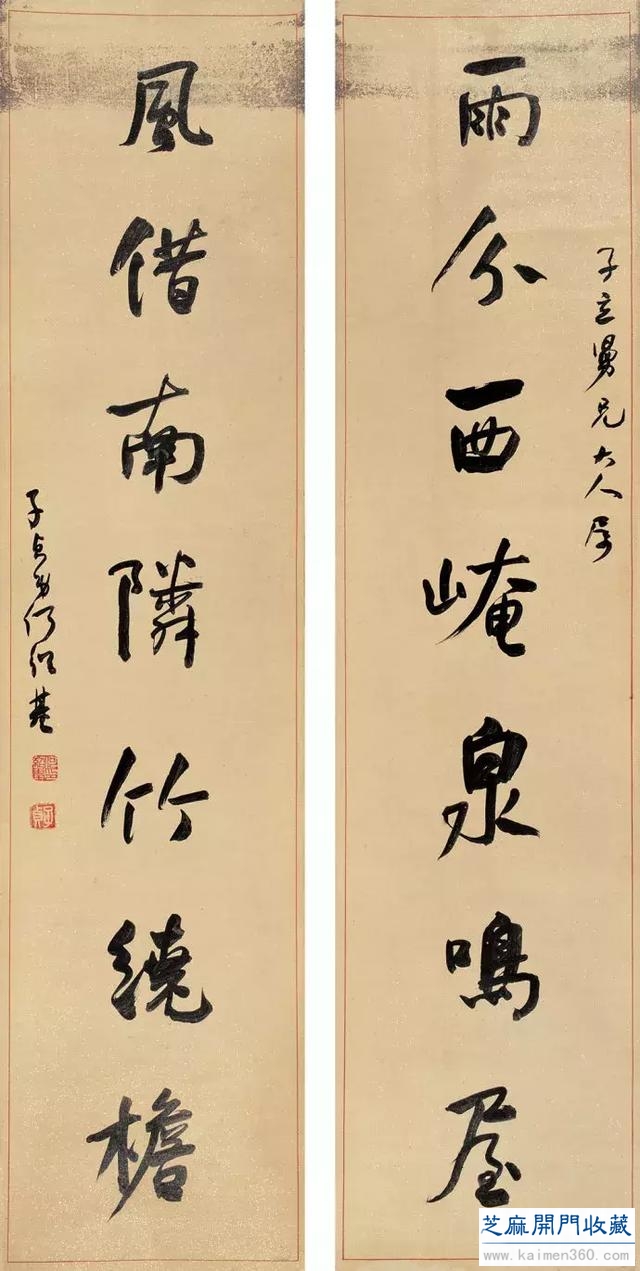 子立舅兄大人属
雨分西崦泉鳴屋
風借南隣竹繞檐
子貞弟何紹基
子貞
芝麻開門收藏
www.kaimen360.com